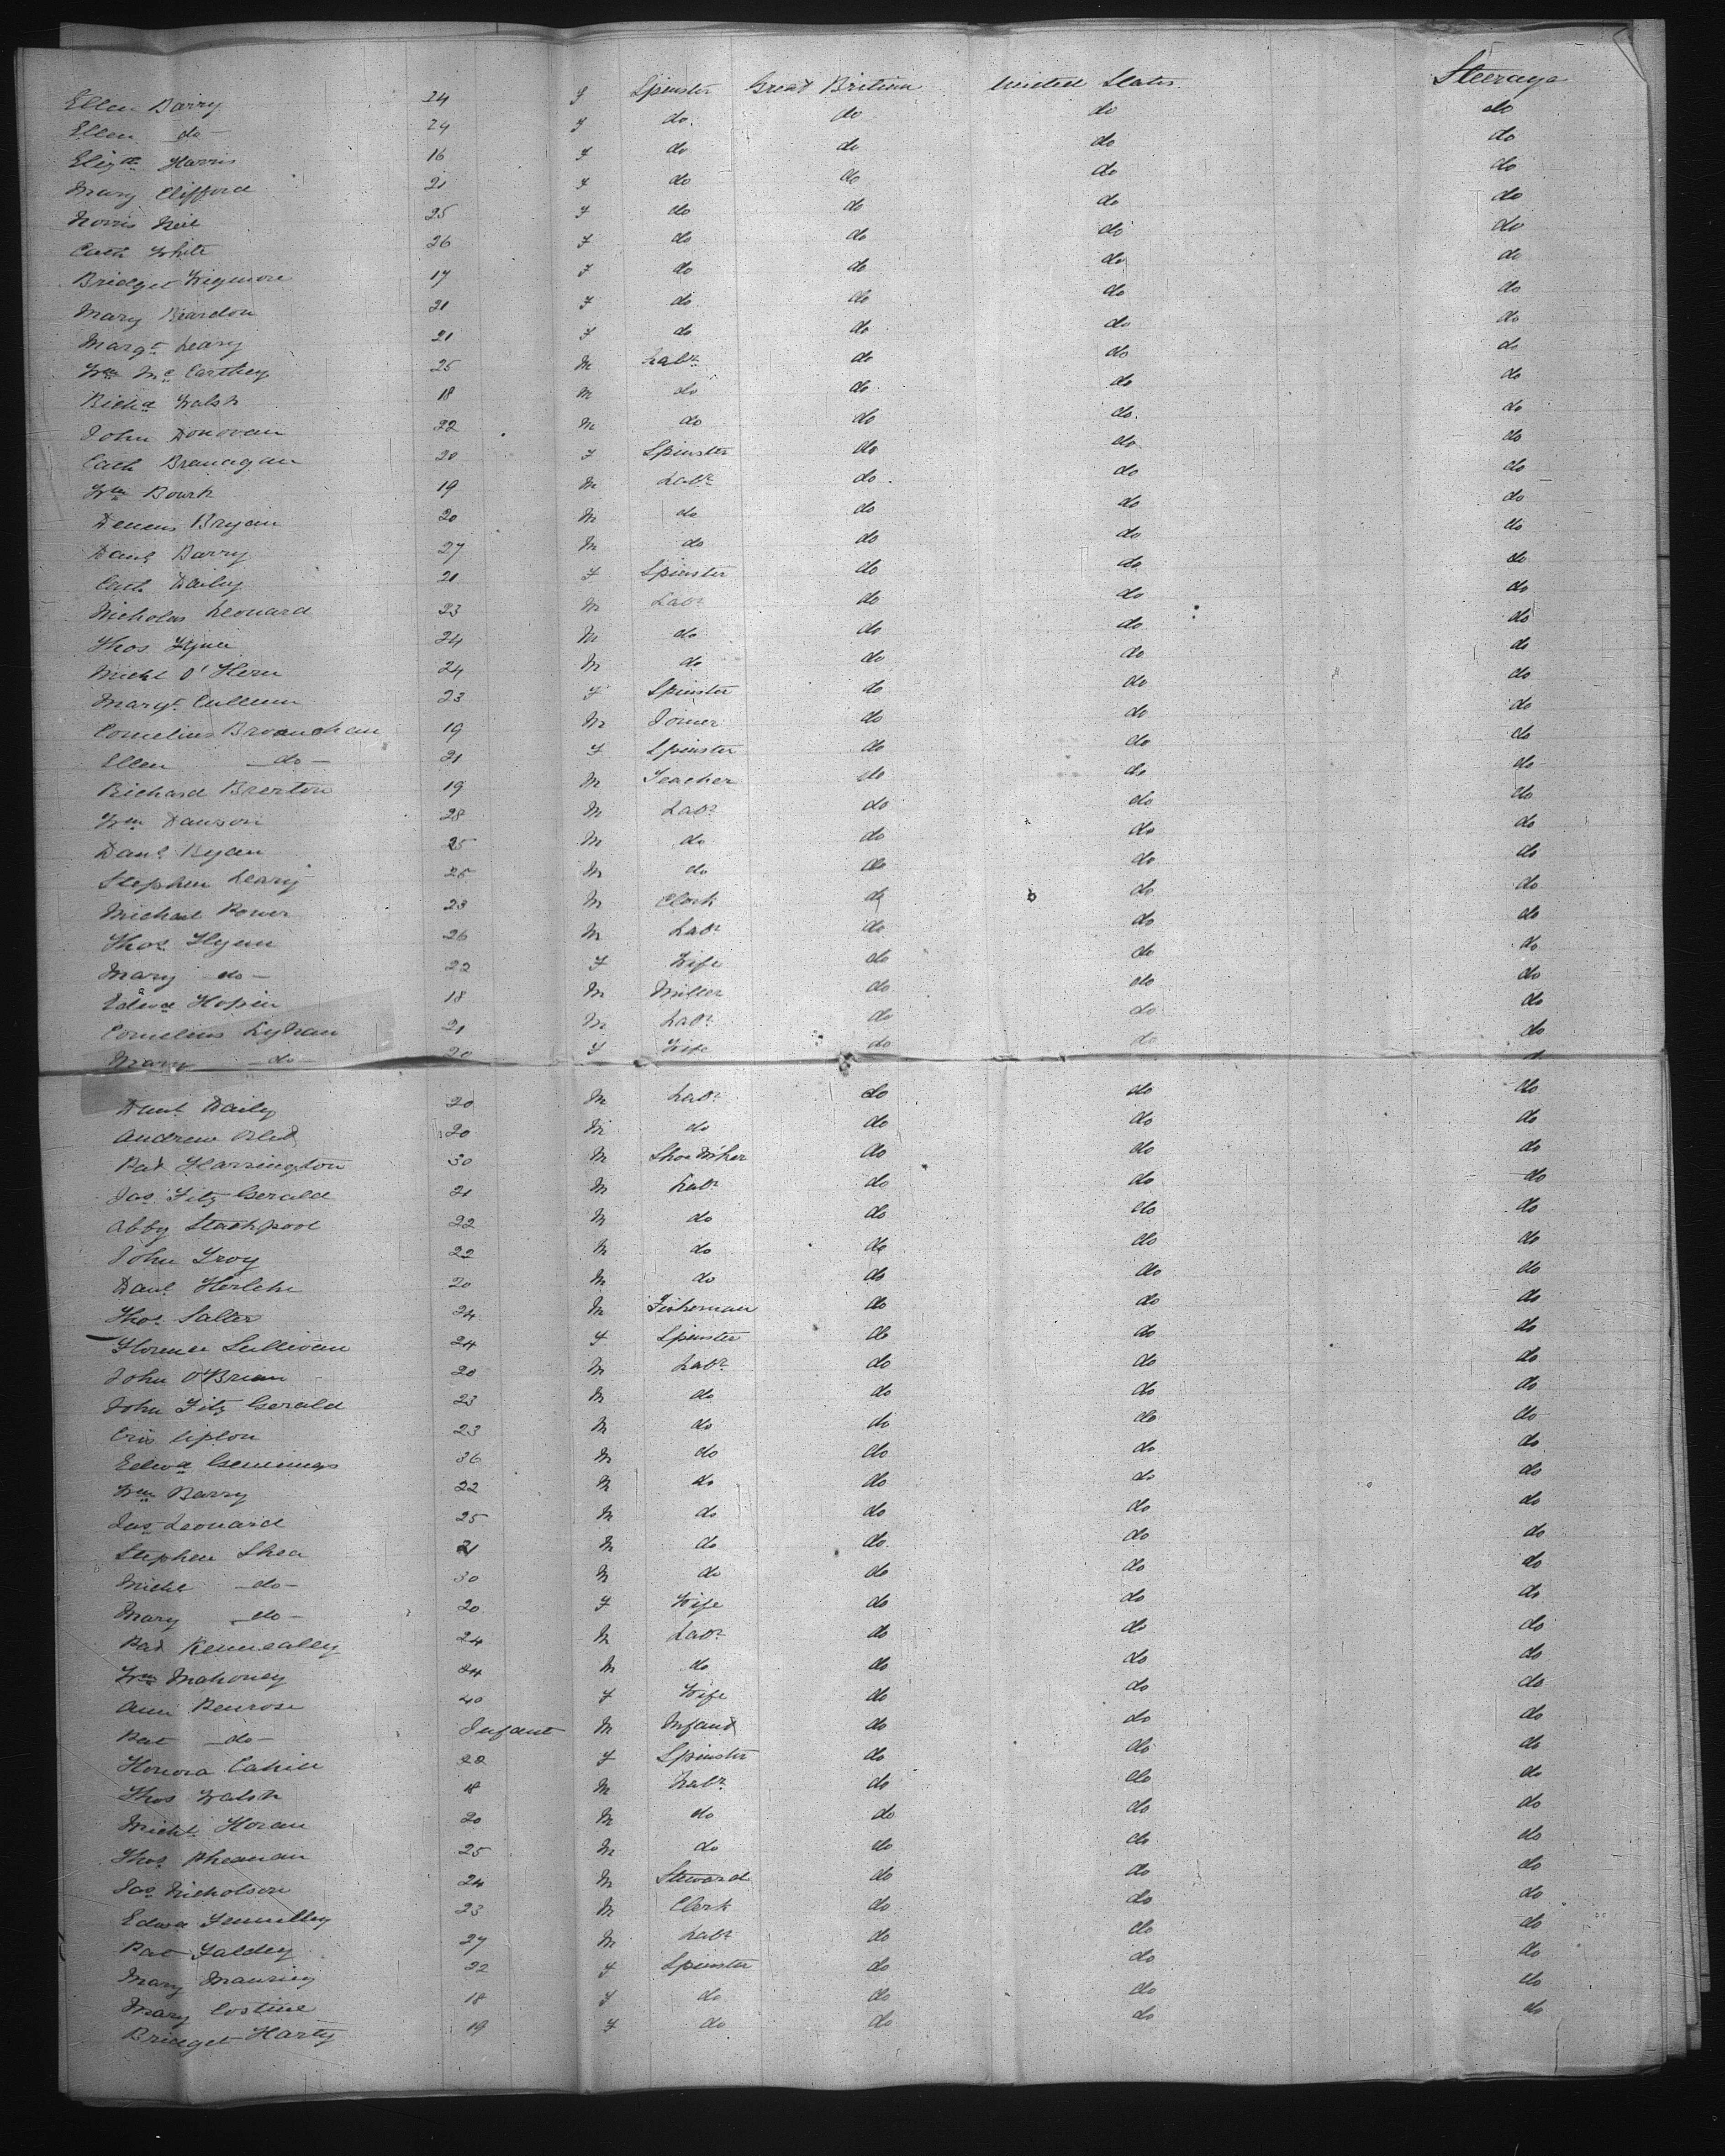 Ellen Barry 24 F Spinster Great Britian United States Steerage
Ellen do 24 F do do do do
Elizth Harris 16 F do do do do
Mary Clifford 21 F do do do do
Norris Neil 25 F do do do do
Cath White 26 F do do do do
Bridget Wigmore 17 F do do do do
Mary Reardon 21 F do do do do
Margt Leary 21 F do do do do
Wm McCarthey 25 M Labr do do do
Richd Walsh 18 M do do do do
John Donovan 22 M do do do do
Cath Branagan 20 F Spinster do do do
Wm Bourk 19 M Labr do do do
Dennis Bryan 20 M do do do do
Danl Barry 27 M do do do do
Cath Daily 21 F Spinster do do do
Nicholas Leonard 23 M Labr do do do
Thos 24 M do do do do
Michl O'Hern 24 M do do do do
Margt Cullenn 23 F Spinster do do do
Cornelius 19 M Joiner do do do
Ellen do 21 F Spinster do do do
Richard Brerton 19 M Teacher do do do
Wm Dawson 28 M Labr do do do
Danl Ryan 25 M do do do do
Stephen Leary 25 M do do do do
Michael Power 23 M Clerk do do do
Thos Flynn 26 M Labr do do do
Mary do 22 F Wife do do do
Edwd Hopin 18 M Miller do do do
Cornelius Lyhan 21 M Labr do do do
Mary do 20 F Wife do do do
Danl Daily 20 M Labr do do do
Andrew 20 M do do do do
Pat Harrington 30 M Shoe M'ker do do do
Jas Fitz Gerald 21 M Labr do do do
Abby Stackpool 22 M do do do do
John Troy 22 M do do do do
Danl Herlehe 20 M do do do do
Thos Salter 24 M Fisherman do do do
Florence Sullivan 24 F Spinster do do do
John O'Brien 20 M Labr do do do
John Fitz Gerald 23 M do do do do
Cris Upton 23 M do do do do
Edwd Gemmings 36 M do do do do
Wm Barry 22 M do do do do
Jas Leonard 25 M do do do do
Stephen Shea 21 M do do do do
Michl do 30 M do do do do
Mary do 20 F Wife do do do
Pat Kennealley 24 M Labr do do do
Wm Mahoney 24 M do do do do
Ann Penrose 40 F Wife do do do
Pat do Infant M Infant do do do
Honora Cahill 22 F Spinster do do do
Thos Walsh 18 M Labr do do do
Michl Horan 20 M do do do do
Thos 25 M do do do do
Jas Nicholson 24 M Steward do do do
Edwd 23 M Clerk do do do
Pat Faldey 27 M Labr do do do
Mary 22 F Spinster do do do
Mary Costine 18 F do do do do
Bridget Harty 19 F do do do do